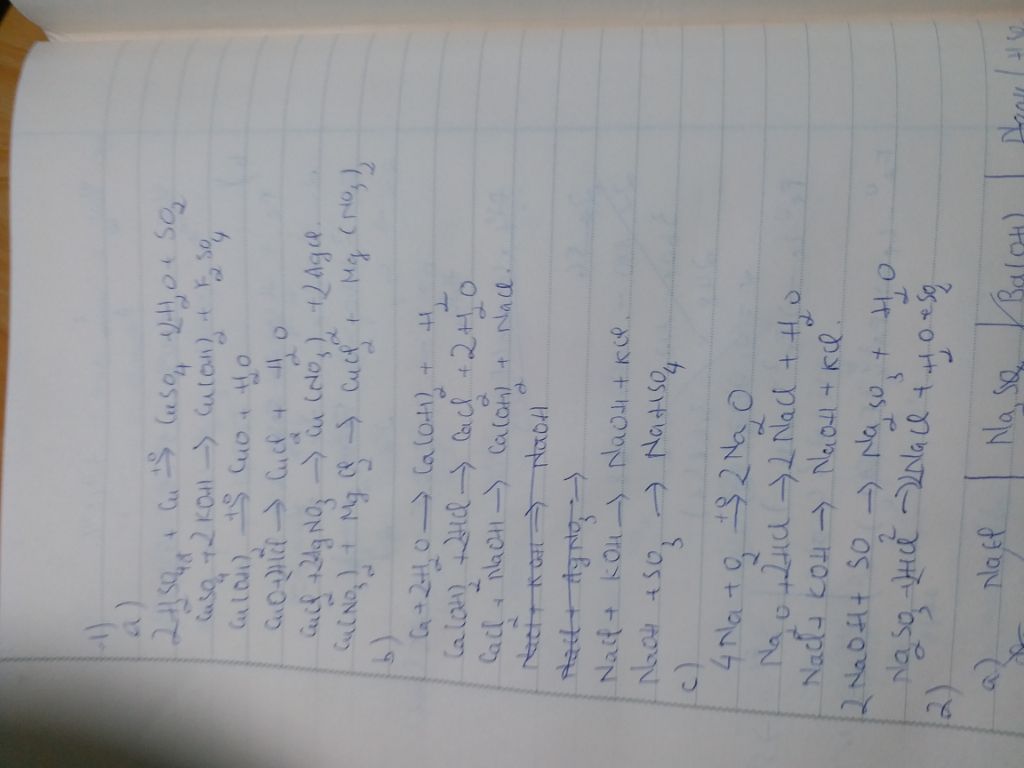 1)
a)
2H₂SO₄đ + Cu –t°→ CuSO₄ + 2H₂O + SO₂
CuSO₄ + 2KOH → Cu(OH)₂ + K₂SO₄
Cu(OH)₂ –t°→ CuO + H₂O
CuO + 2HCl → CuCl₂ + H₂O
CuCl₂ + 2AgNO₃ → Cu(NO₃)₂ + 2AgCl.
Cu(NO₃)₂ + MgCl₂ → CuCl₂ + Mg(NO₃)₂
b)
Ca + 2H₂O → Ca(OH)₂ + H₂
Ca(OH)₂ + 2HCl → CaCl₂ + 2H₂O
CaCl₂ + NaOH → Ca(OH)₂ + NaCl.
NaCl + KOH → NaOH
NaCl + AgNO₃ →
NaCl + KOH → NaOH + KCl.
NaOH + SO₃ → NaHSO₄
c)
4Na + O₂ –t°→ 2Na₂O
Na₂O + 2HCl → 2NaCl + H₂O
NaCl + KOH → NaOH + KCl.
2NaOH + SO₂ → Na₂SO₃ + H₂O
Na₂SO₃ + 2HCl → 2NaCl + H₂O + SO₂
2)
a) NaCl | Na₂SO₄ | Ba(OH)